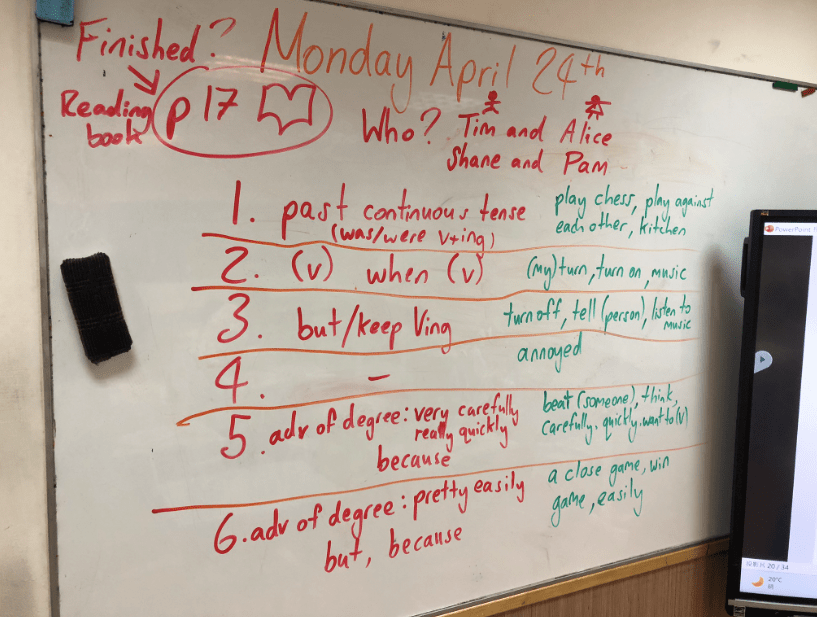 Finished? Monday April 24th
Reading
book
p 17
Who? Tim and Alice
Shane and Pam
1. past continuous tense
(was/were v+ing)
play chess, play against
each other, kitchen
2. (v) when (v)
(my) turn, turn on, music
3. but/keep Ving
turn off, tell (person), listen to
music
4. –
annoyed
5. adv of degree: very carefully
really quickly
because
beat (someone), think,
carefully. quickly. want to (v)
6. adv of degree: pretty easily
but, because
a close game, win
game, easily
PowerPoint
20 / 34
20°C